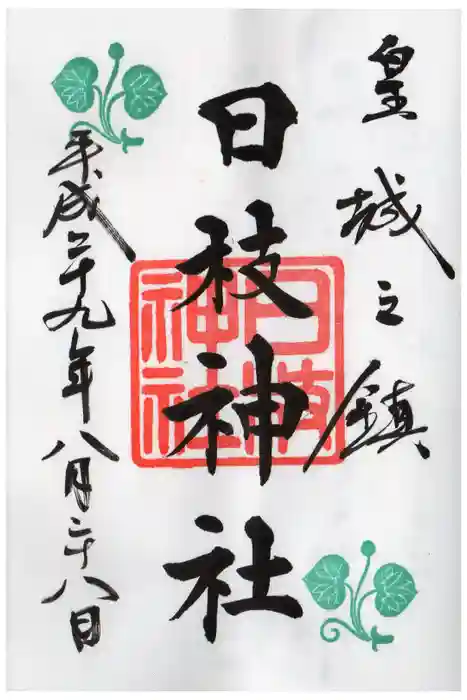 皇城之鎮
日枝神社
日枝神社
平成二十九年八月二十八日